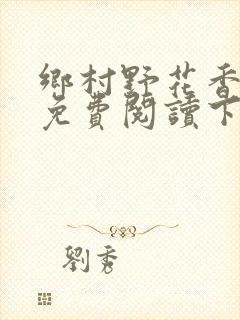 鄉村野花香
免費閱讀下
劉秀